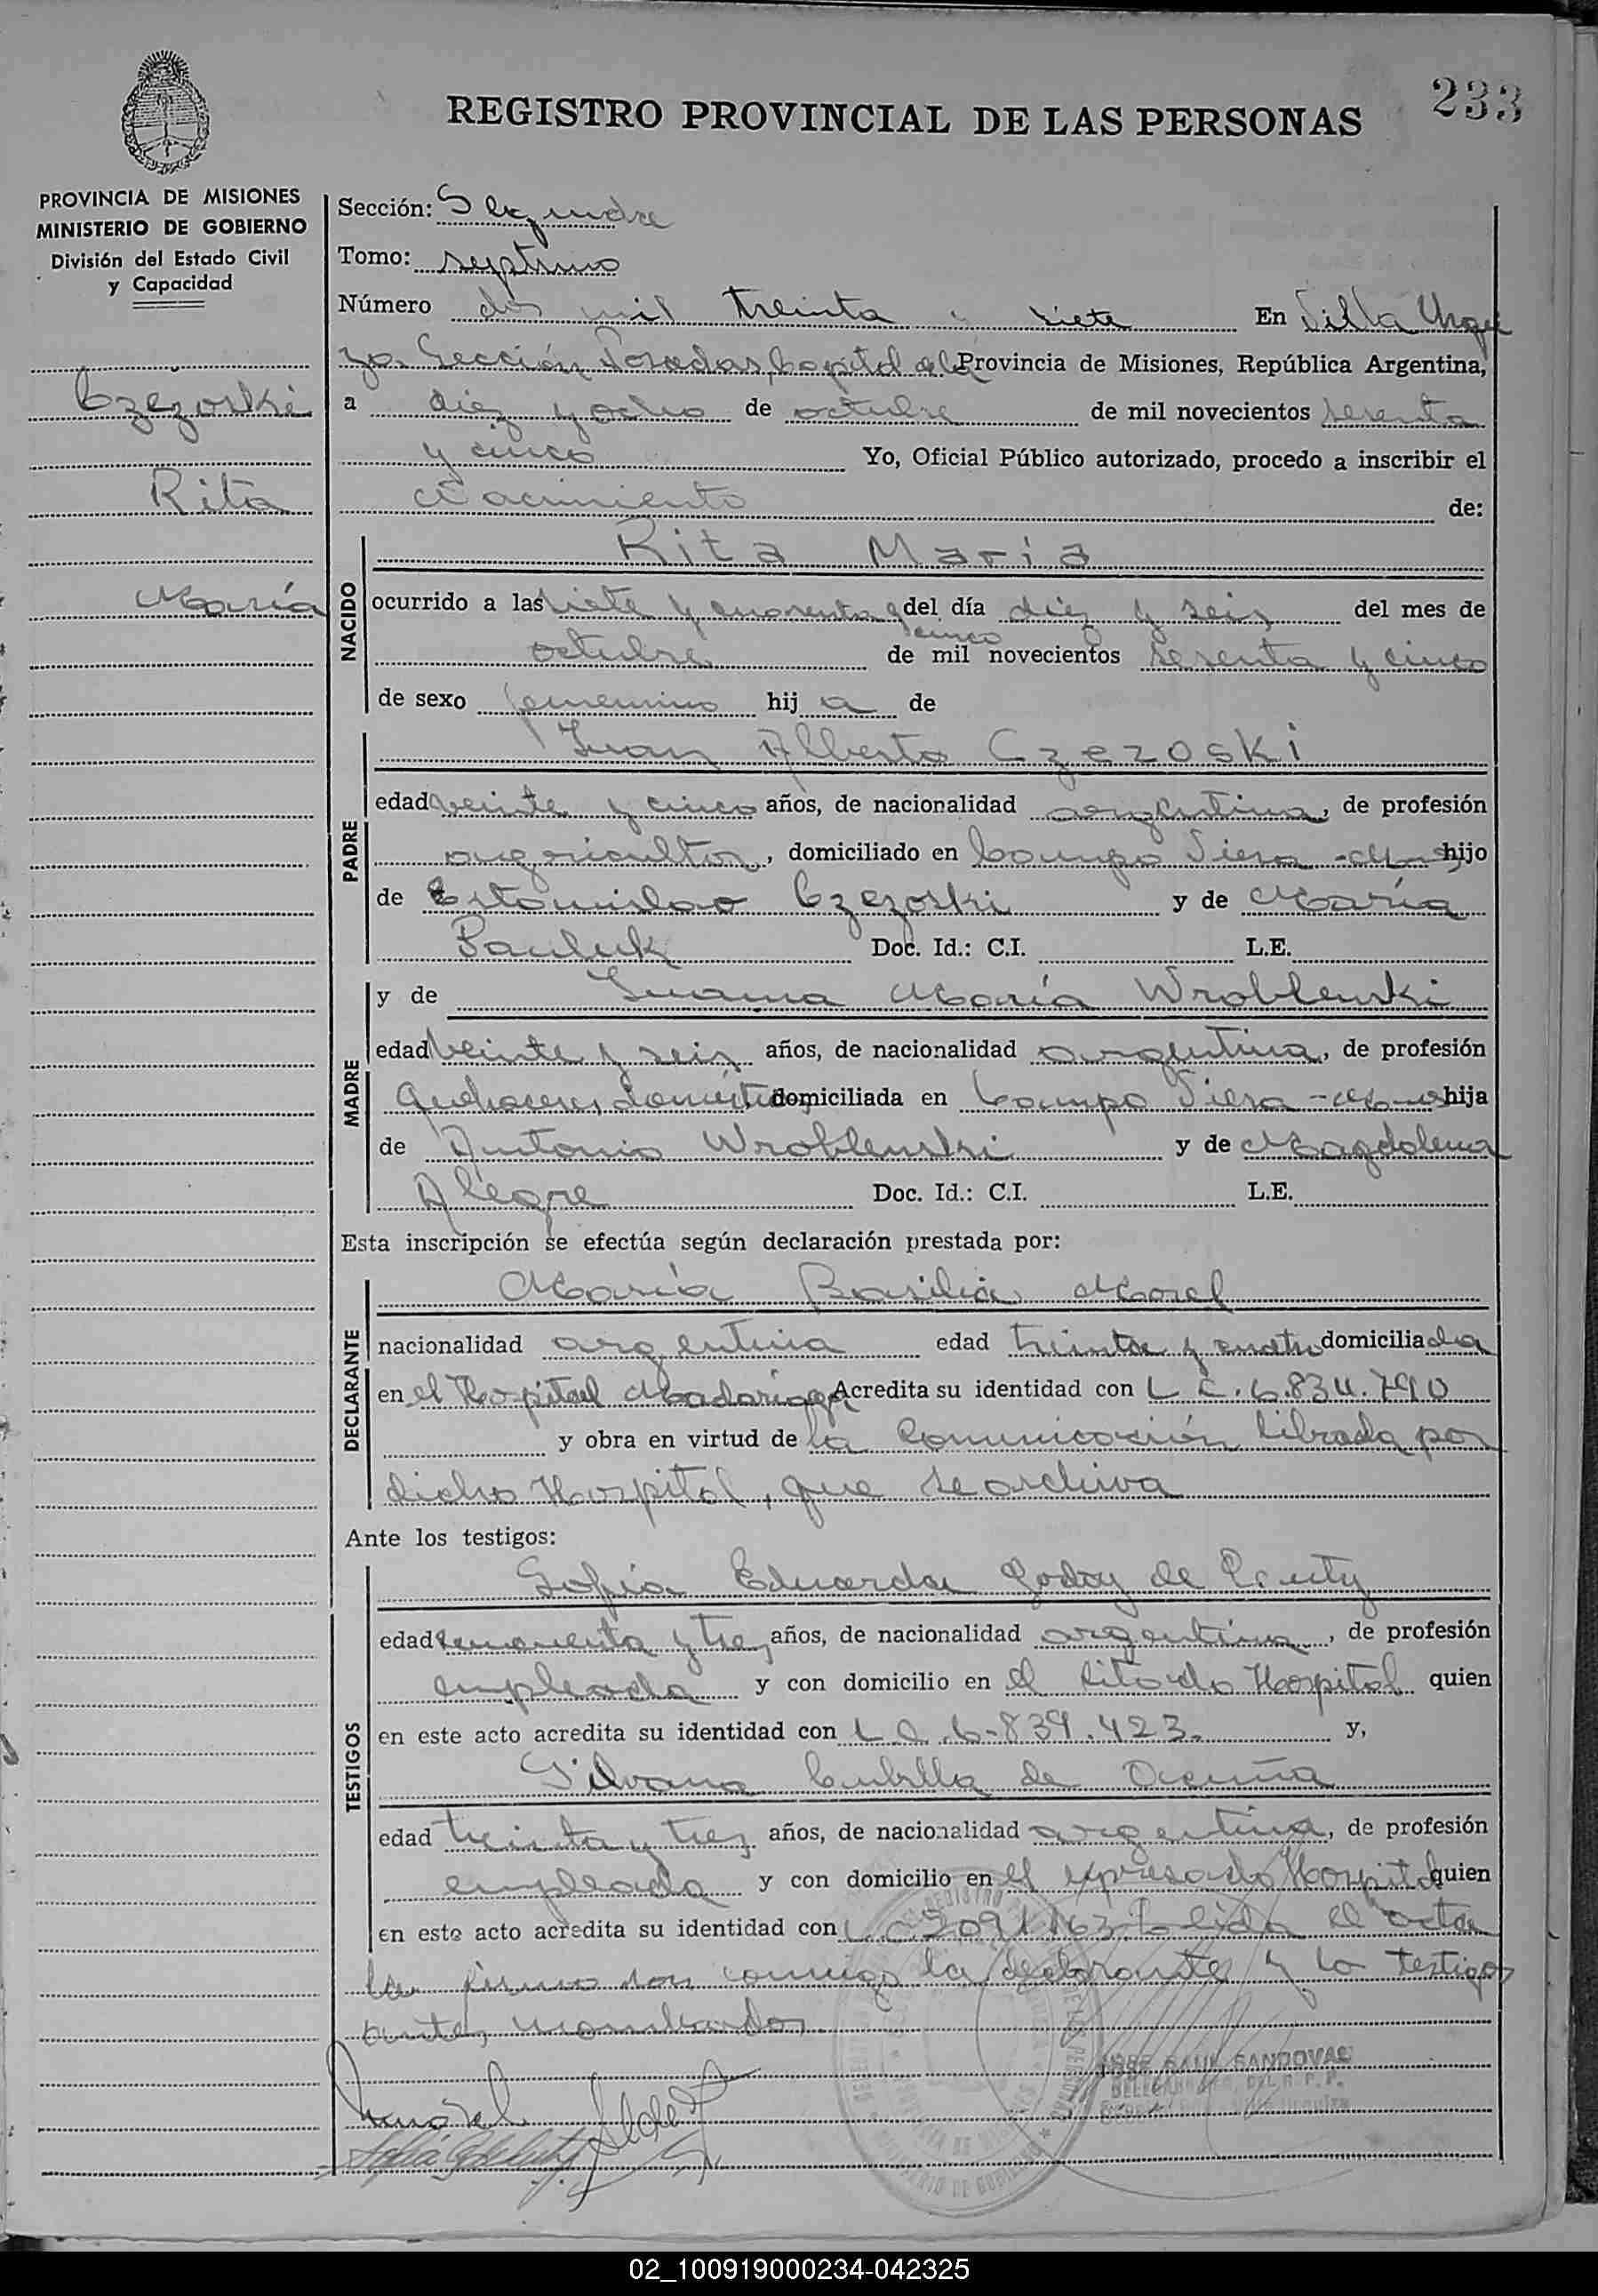 233
REGISTRO PROVINCIAL DE LAS PERSONAS
PROVINCIA DE MISIONES
MINISTERIO DE GOBIERNO
División del Estado Civil
y Capacidad
Czezoski
Rita
María
Sección: Segunda
Tomo: septimo
Número dos mil treinta y siete En Villa Urqui
za Sección Posadas, Capital de la Provincia de Misiones, República Argentina,
a diez y ocho de octubre de mil novecientos sesenta
y cinco Yo, Oficial Público autorizado, procedo a inscribir el
Nacimiento de:
NACIDO
Rita María
ocurrido a las siete y cuarenta y del día diez y seis del mes de
cinco
octubre de mil novecientos sesenta y cinco
de sexo femenino hij a de
PADRE
Juan Alberto Czezoski
edad veinte y cinco años, de nacionalidad argentina, de profesión
agricultor, domiciliado en Campo Viera - hijo
de Estanislao Czezoski y de María
Pauluk Doc. Id.: C.I. L.E.
MADRE
y de Juana María Wroblenski
edad veinte y seis años, de nacionalidad argentina, de profesión
Quehaceres domésticos domiciliada en Campo Viera - hija
de Antonio Wroblenski y de Magdalena
Alegre Doc. Id.: C.I. L.E.
Esta inscripción se efectúa según declaración prestada por:
DECLARANTE
María Basilia Morel
nacionalidad argentina edad treinta y cuatro domiciliada
en el Hospital Madariaga Acredita su identidad con L C. 6.834.790
y obra en virtud de la Comunicación librada por
dicho Hospital, que se archiva
Ante los testigos:
TESTIGOS
Sofía Eduarda Godoy de
edad y tres años, de nacionalidad argentina, de profesión
empleada y con domicilio en el citado Hospital quien
en este acto acredita su identidad con L C. 6-839.423. y,
Silvana Cubilla de Acuña
edad treinta y tres años, de nacionalidad argentina, de profesión
empleada y con domicilio en el expresado Hospital quien
en este acto acredita su identidad con Leida el acta
la firman con conmigo la declarante y la testigos
antes nombrados
JOSE RAUL SANDOVAL
02_100919000234-042325